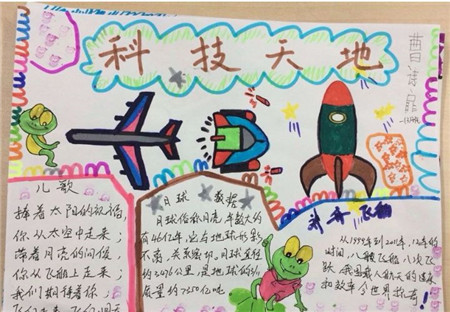 科技天地
儿歌
捧着太阳的祝福,
你从太空中走来;
带着月亮的问候,
你从飞船上走来;
我们期待着你,
月球 数据
月球俗称月亮,年龄大约
有46亿年,它与地球形影
不离,关系密切,月球直径
约3476公里,是地球的
质量约7350亿吨
神舟飞船
从1999年到2011年,12年的
时间,八艘飞船,八次飞
跃,我国载人航天的速度
和效率令世界惊奇!